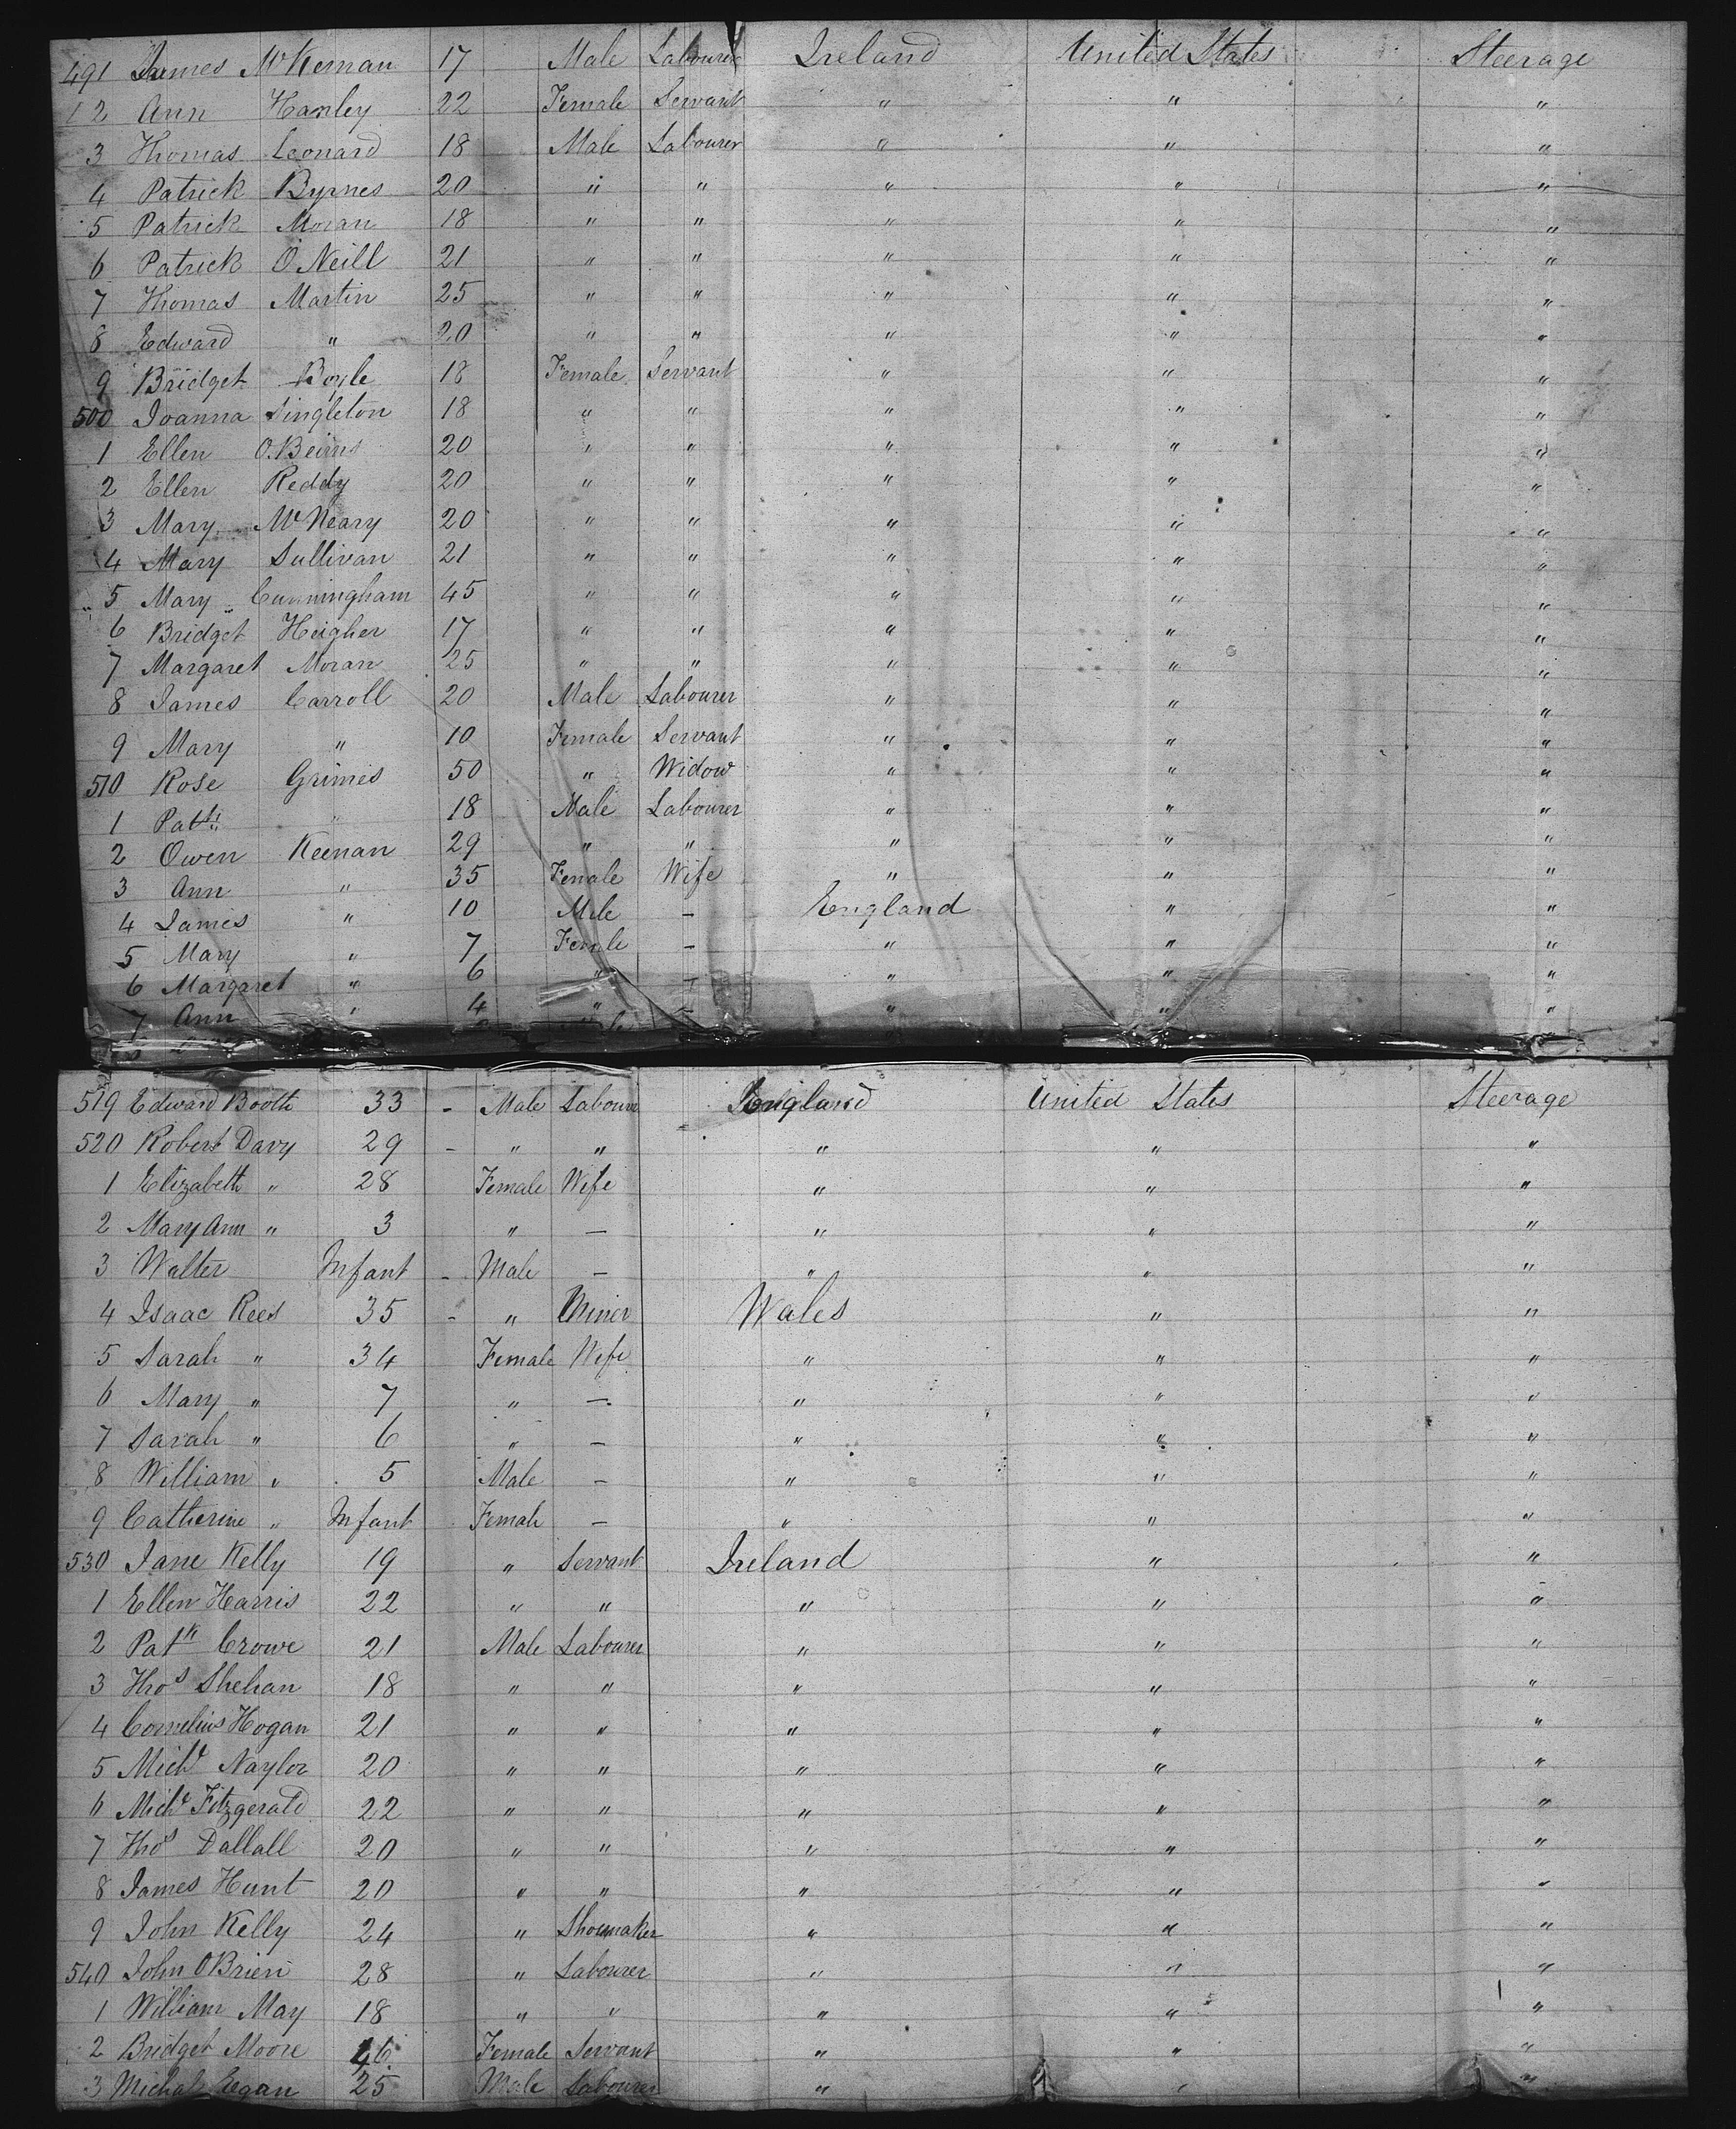 491 James McKernan 17 Male Labourer Ireland United States Steerage
2 Ann Hanley 22 Female Servant " " "
3 Thomas Leonard 18 Male Labourer " " "
4 Patrick Byrnes 20 " " " " "
5 Patrick Moran 18 " " " " "
6 Patrick O'Neill 21 " " " " "
7 Thomas Martin 25 " " " " "
8 Edward " 20 " " " " "
9 Bridget Boyle 18 Female Servant " " "
500 Joanna Singleton 18 " " " " "
1 Ellen O.Beirns 20 " " " " "
2 Ellen Reddy 20 " " " " "
3 Mary McNeary 20 " " " " "
4 Mary Sullivan 21 " " " " "
5 Mary Cunningham 45 " " " " "
6 Bridget Heigher 17 " " " " "
7 Margaret Moran 25 " " " " "
8 James Carroll 20 Male Labourer " " "
9 Mary " 10 Female Servant " " "
510 Rose Grimes 50 " Widow " " "
1 Patk " 18 Male Labourer " " "
2 Owen Keenan 29 " " " " "
3 Ann " 35 Female Wife " " "
4 James " 10 Male – England " "
5 Mary " 7 Female – " " "
6 Margaret " 6 " – " " "
7 Ann " 4 " – " " "
519 Edward Booth 33 - Male Labourer England United States Steerage
520 Robert Davy 29 - " " " " "
1 Elizabeth " 28 Female Wife " " "
2 Mary Ann " 3 " – " " "
3 Walter " Infant - Male – " " "
4 Isaac Rees 35 - " Miner Wales " "
5 Sarah " 34 Female Wife " " "
6 Mary " 7 " – " " "
7 Sarah " 6 " – " " "
8 William " 5 Male – " " "
9 Catherine " Infant Female – " " "
530 Jane Kelly 19 " Servant Ireland " "
1 Ellen Harris 22 " " " " "
2 Patk Crowe 21 Male Labourer " " "
3 Thos Shehan 18 " " " " "
4 Cornelius Hogan 21 " " " " "
5 Michl Naylor 20 " " " " "
6 Michl Fitzgerald 22 " " " " "
7 Thos Dallall 20 " " " " "
8 James Hunt 20 " " " " "
9 John Kelly 24 " Shoemaker " " "
540 John OBrien 28 " Labourer " " "
1 William May 18 " " " " "
2 Bridget Moore Female Servant " " "
3 Michal Egan 25 Male Labourer " " "